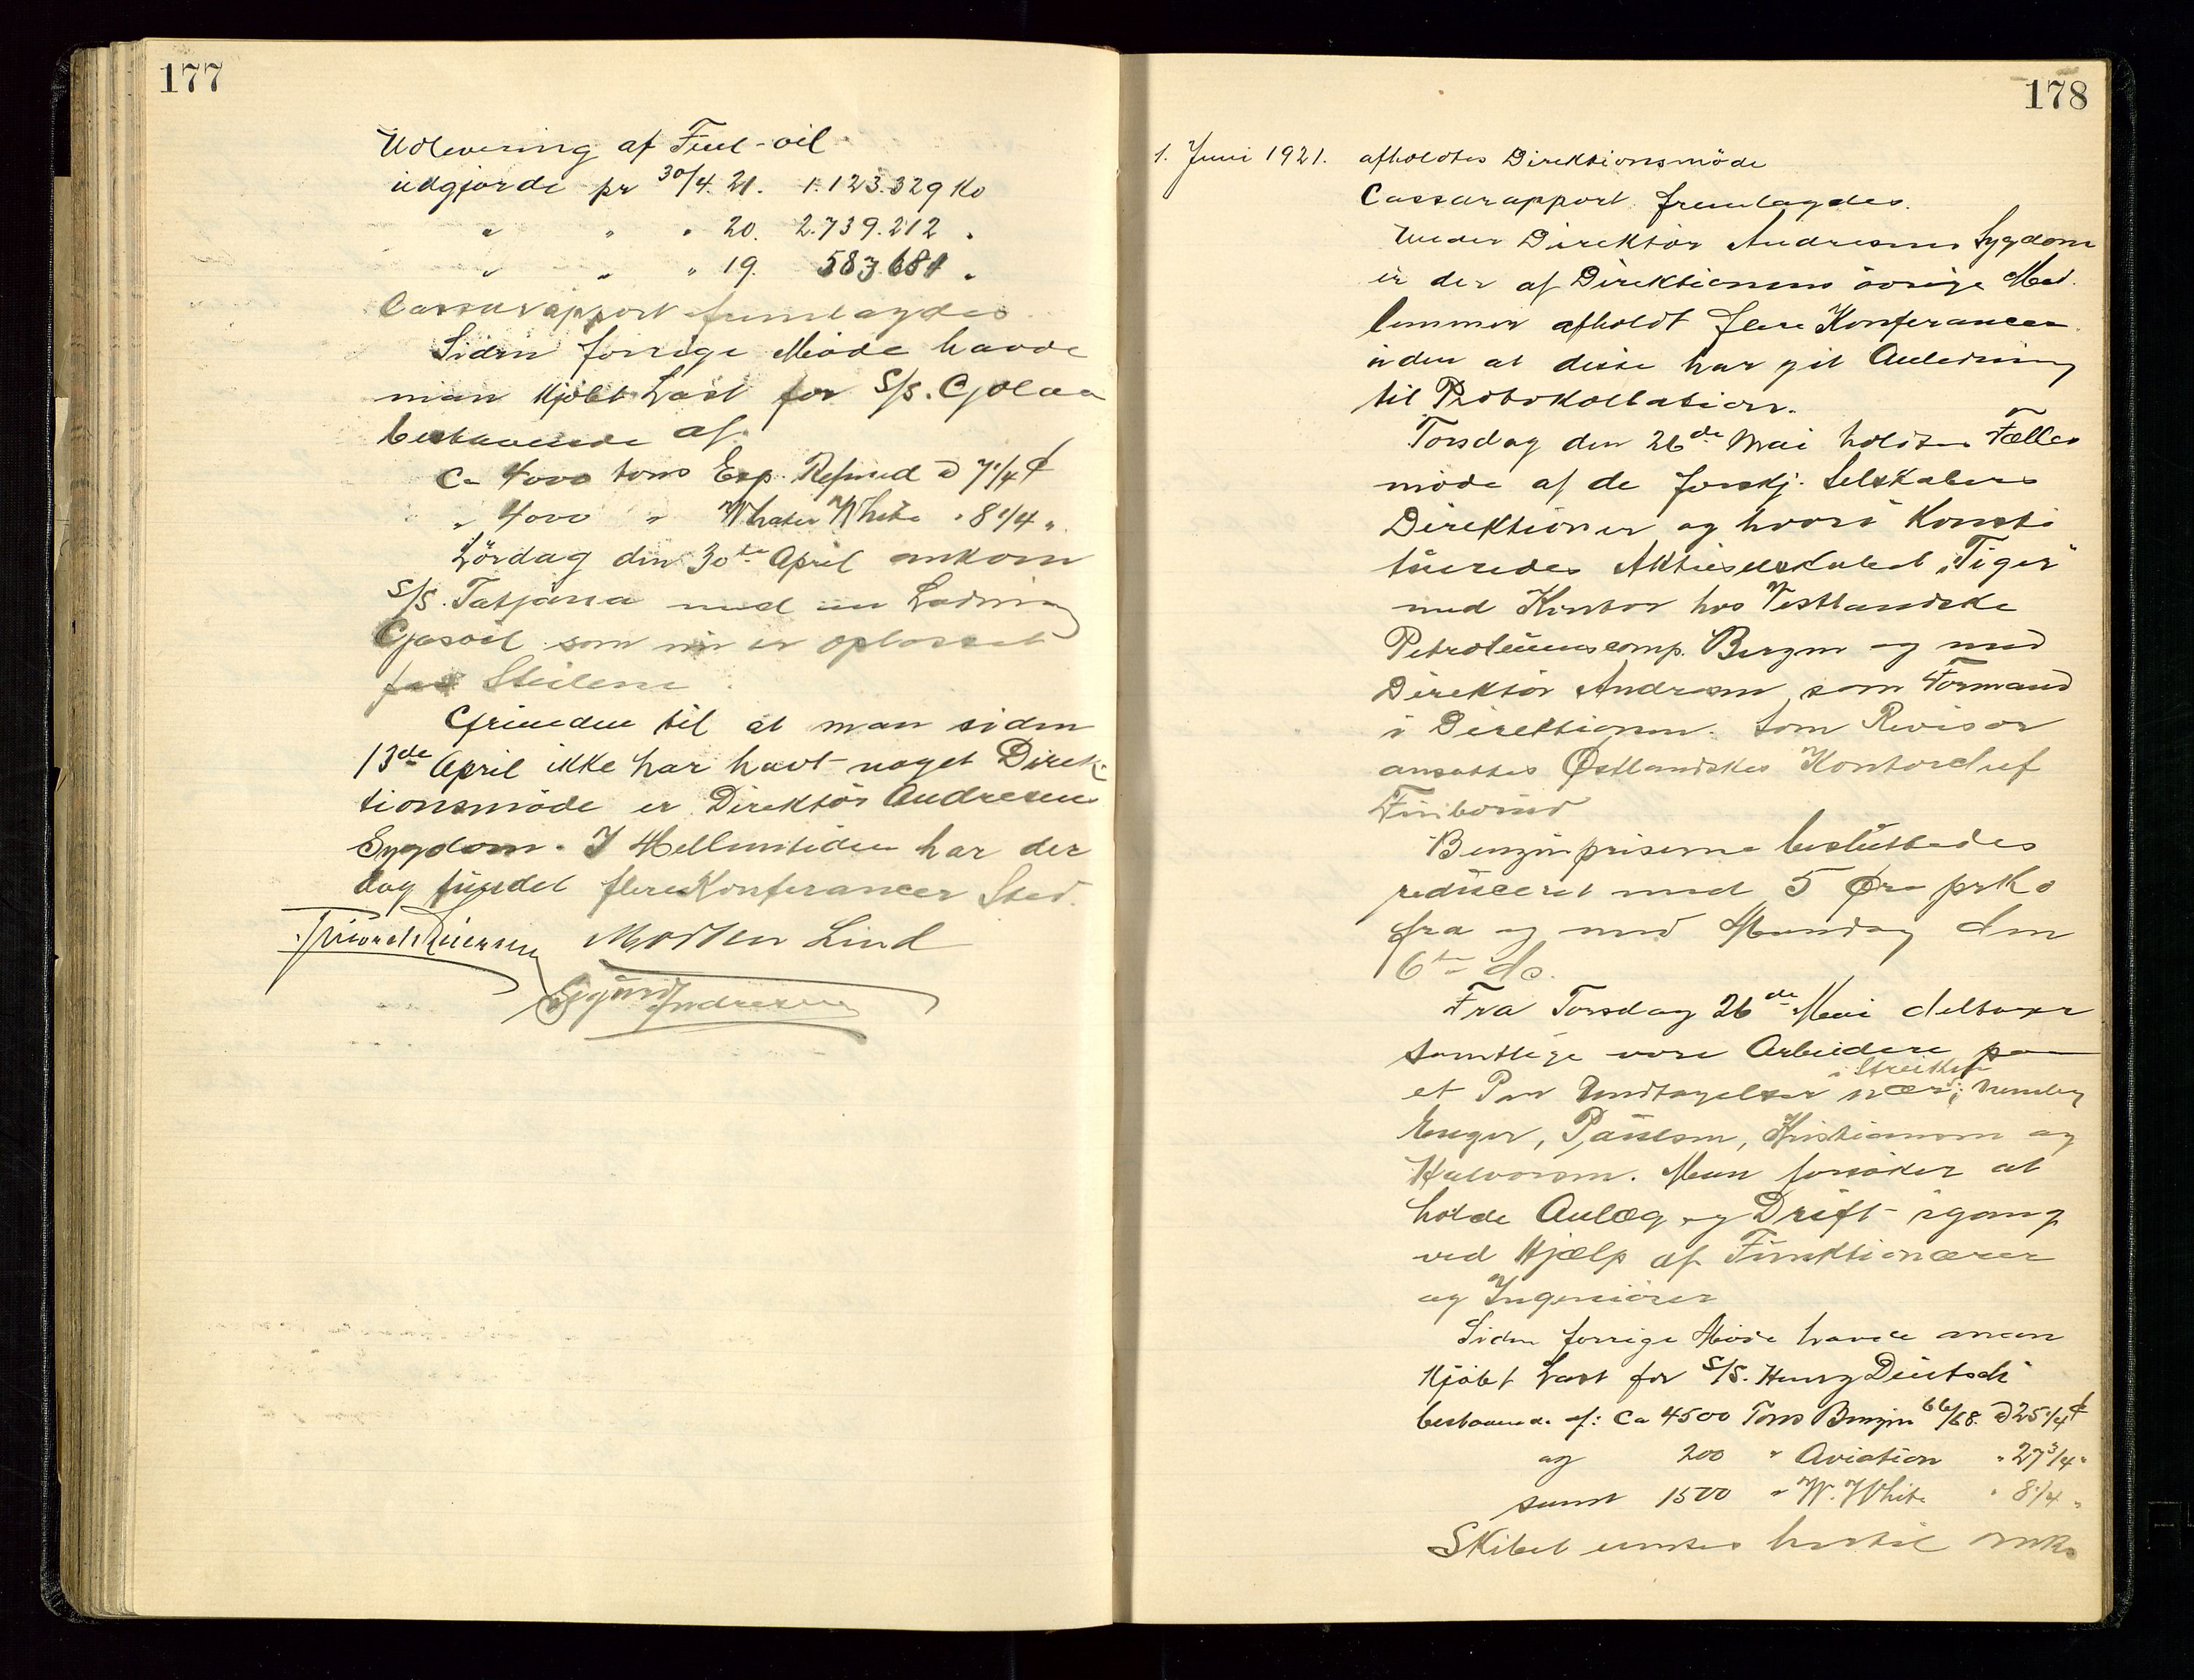 177
Udlevering af Fuel-oil
udgjorde pr 30/4. 21. 1.123.329 Ko
" " " 20. 2.739.212 "
" " " 19. 583.681 "
Cassarapport fremlagdes
Siden forrige Møde havde
man kjöbt Last for S/S. Gjolaa
bestaaende af
Ca 4000 tons Exp. Refined à 7 1/4 ¢
" 4000 " Whater White " 8 1/4 "
Lördag den 30te April ankom
S/S. Tatjana med en Ladning
Gasoil som nu er oplosset
paa Steilene.
Grunden til at man siden
13de April ikke har havt noget Direk-
tionsmöde er Direktör Andresens
Sygdom. I Mellemtiden har der
dog fundet flere Konferancer Sted.
Morten Lind
Sigurd Andresen
178
1. Juni 1921. afholdtes Direktionsmöde
Cassarapport fremlagdes.
Under Direktör Andresens Sygdom
er der af Direktionens övrige Med-
lemmer afholdt flere Konferancer
uden at disse har git Anledning
til Protokollation.
Torsdag den 26de Mai holdtes Fælles
möde af de forskj. Selskabers
Direktioner og hvori Konsti
tueredes Aktieselskabet "Tiger"
med Kontor hos Vestlandske
Petroleumscomp. Bergen og med
Direktör Andresen som Formand
i Direktionen. Som Revisor
ansattes Østlandskes Kontorchef
Benzinpriserne besluttedes
reduceret med 5 Øre pr Ko
fra og med Mandag den
6te ds.
Fra Torsdag 26de Mai deltager
samtlige vore Arbeidere paa
et Par Undtagelser nær i Streiken; nemlig
Enger, Paulsen, Kristiansen og
Halvorsen. Man forsöker at
holde Anlæg og Drift igang
ved Hjælp af Funktionærer
og Ingeniörer
Siden forrige Möde havde man
kjöbt Last for S/S. Henry Deutsch
bestaaende af: Ca 4500 Tons Benzin 66/68. à 25 1/4 ¢
og 200 " Aviation " 27 3/4 "
samt 1500 " W. White " 8 1/4 "
Skibet ventes hertil omkr.